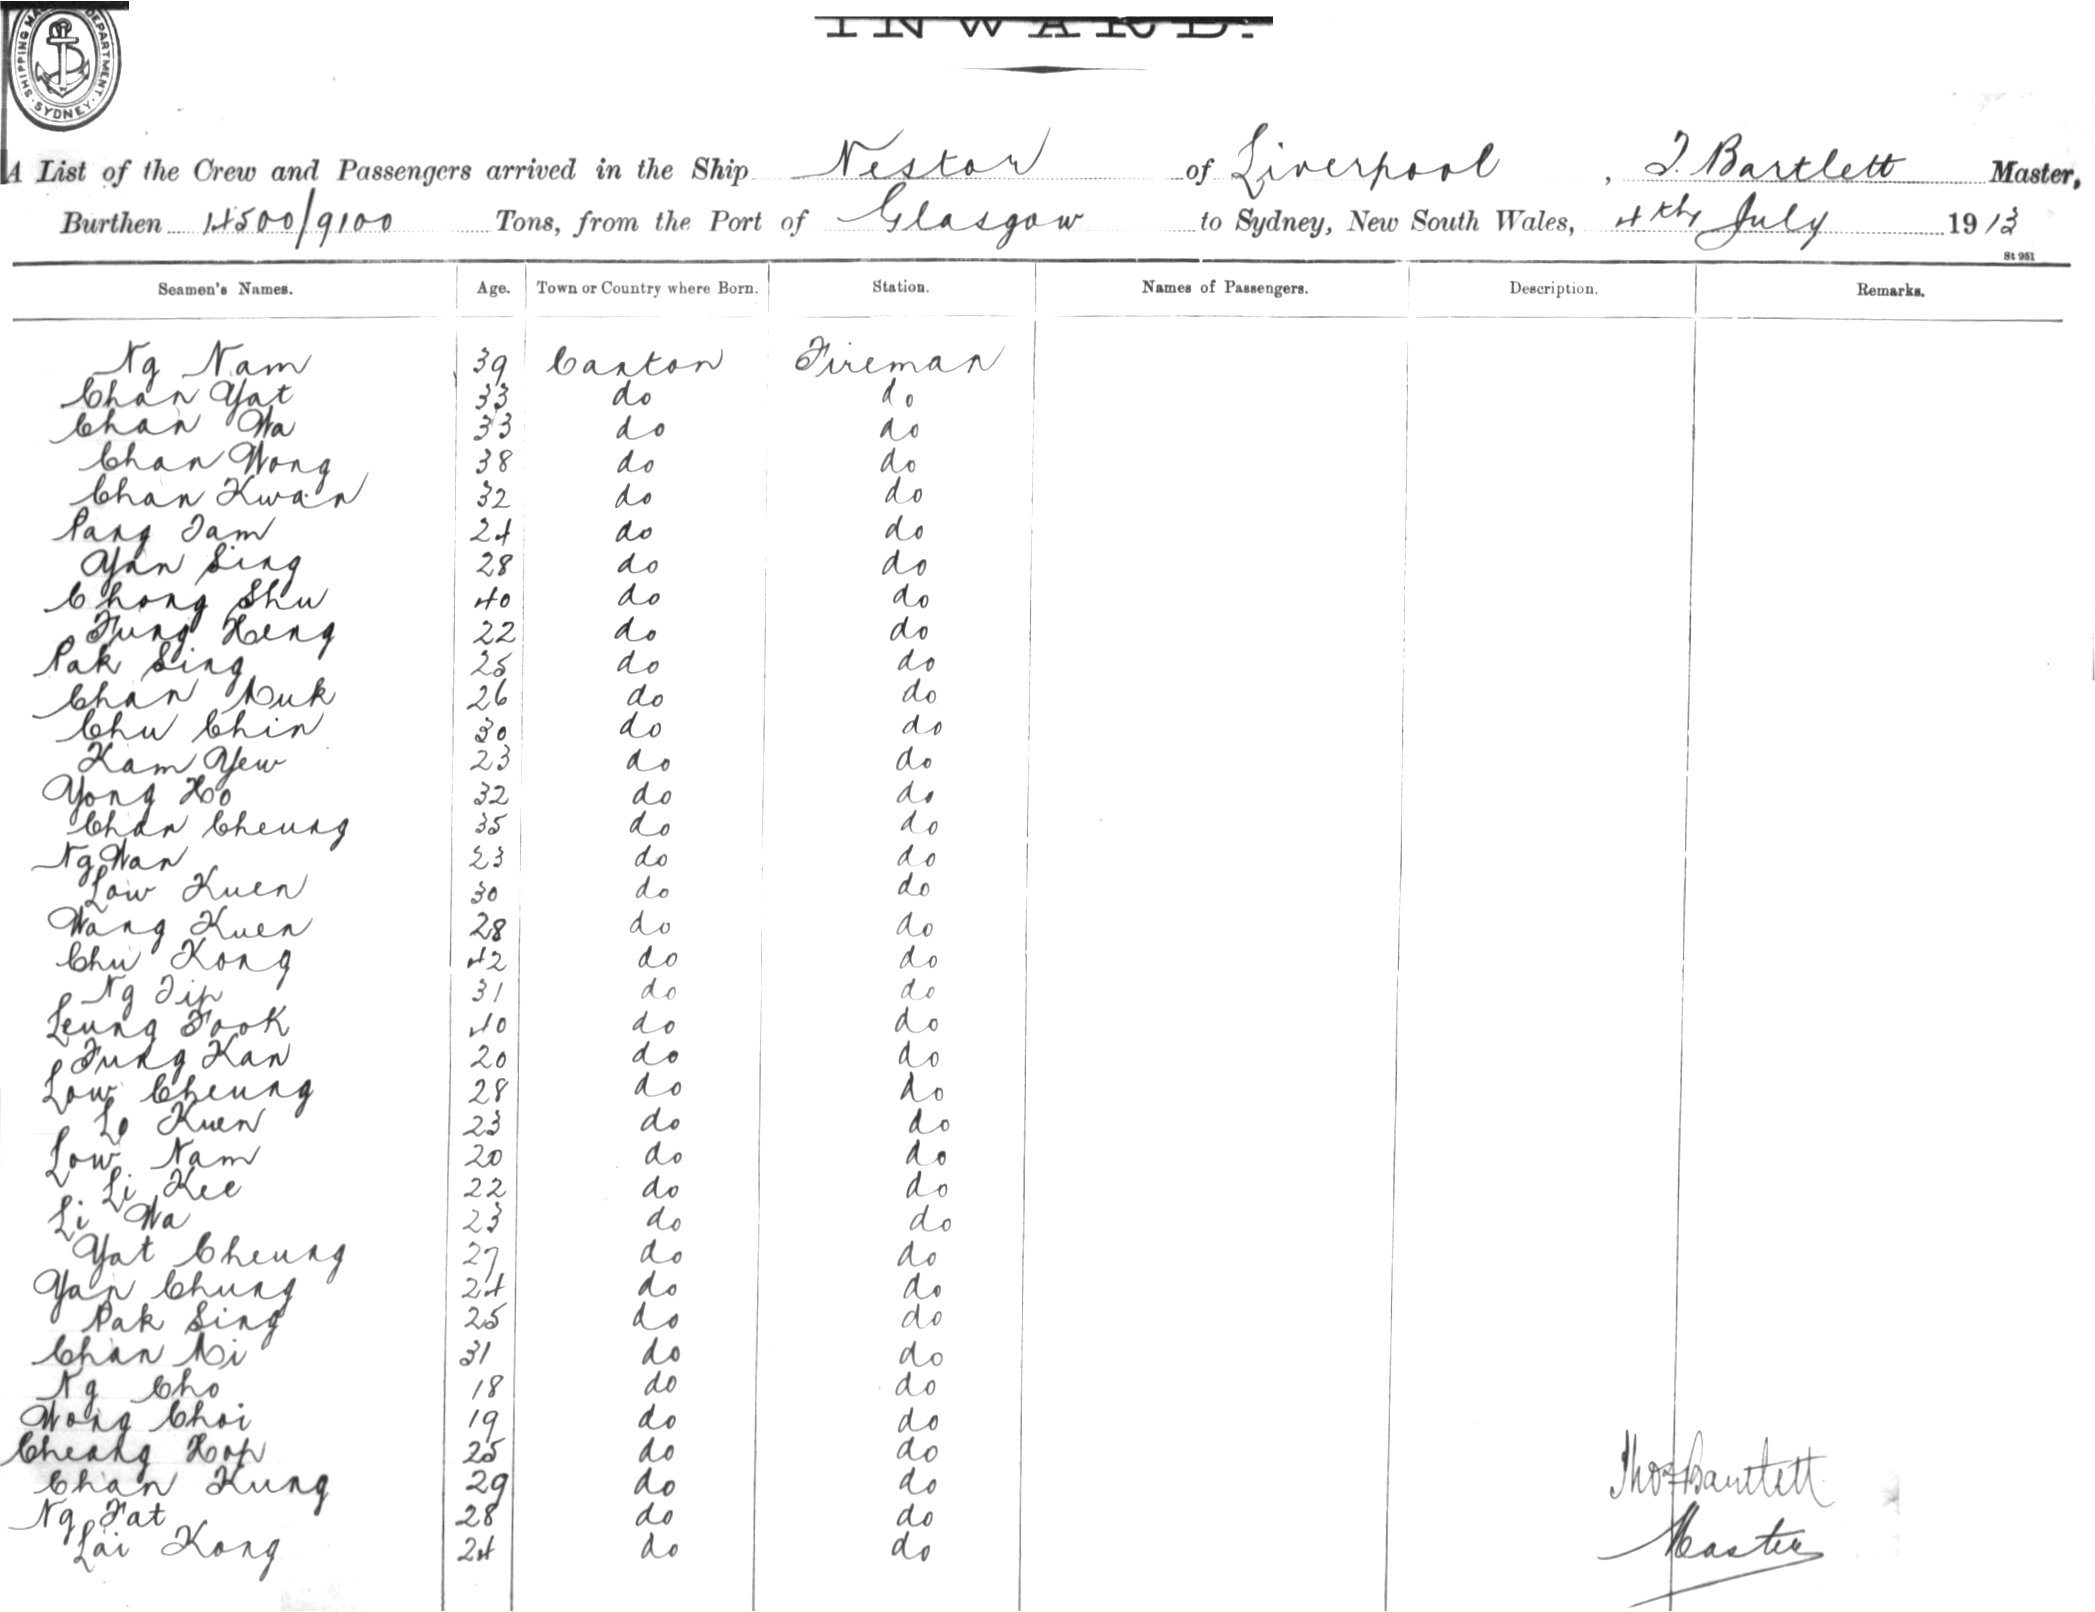 SHIPPING MA DEPARTMENT SYDNEY
INWARD.
A List of the Crew and Passengers arrived in the Ship Nestor of Liverpool, T. Bartlett Master,
Burthen 14500/9100 Tons, from the Port of Glasgow to Sydney, New South Wales, 4th July 1913
St 951
Seamen's Names. Age. Town or Country where Born. Station. Names of Passengers. Description. Remarks.
Ng Nam 39 Canton Fireman
Chan Yat 33 do do
Chan Wa 33 do do
Chan Wong 38 do do
Chan Kwan 32 do do
Pang Tam 24 do do
Yan Sing 28 do do
Chong Shu 40 do do
Fung Heng 22 do do
Pak Sing 25 do do
Chan Muk 26 do do
Chu Chin 30 do do
Kam Yew 23 do do
Yong Ho 32 do do
Chan Cheung 35 do do
Ng Wan 23 do do
Low Kuen 30 do do
Wang Kuen 28 do do
Chu Kong 42 do do
Ng Tip 31 do do
Leung Fook 40 do do
Fung Kan 20 do do
Low Cheung 28 do do
Lo Kuen 23 do do
Low Nam 20 do do
Li Kee 22 do do
Li Wa 23 do do
Yat Cheung 27 do do
Yan Chung 24 do do
Pak Sing 25 do do
Chan Mi 31 do do
Ng Cho 18 do do
Wong Choi 19 do do
Cheang Hop 25 do do
Chan Kung 29 do do
Ng Fat 28 do do
Lai Kong 24 do do
Thos Bartlett
Master